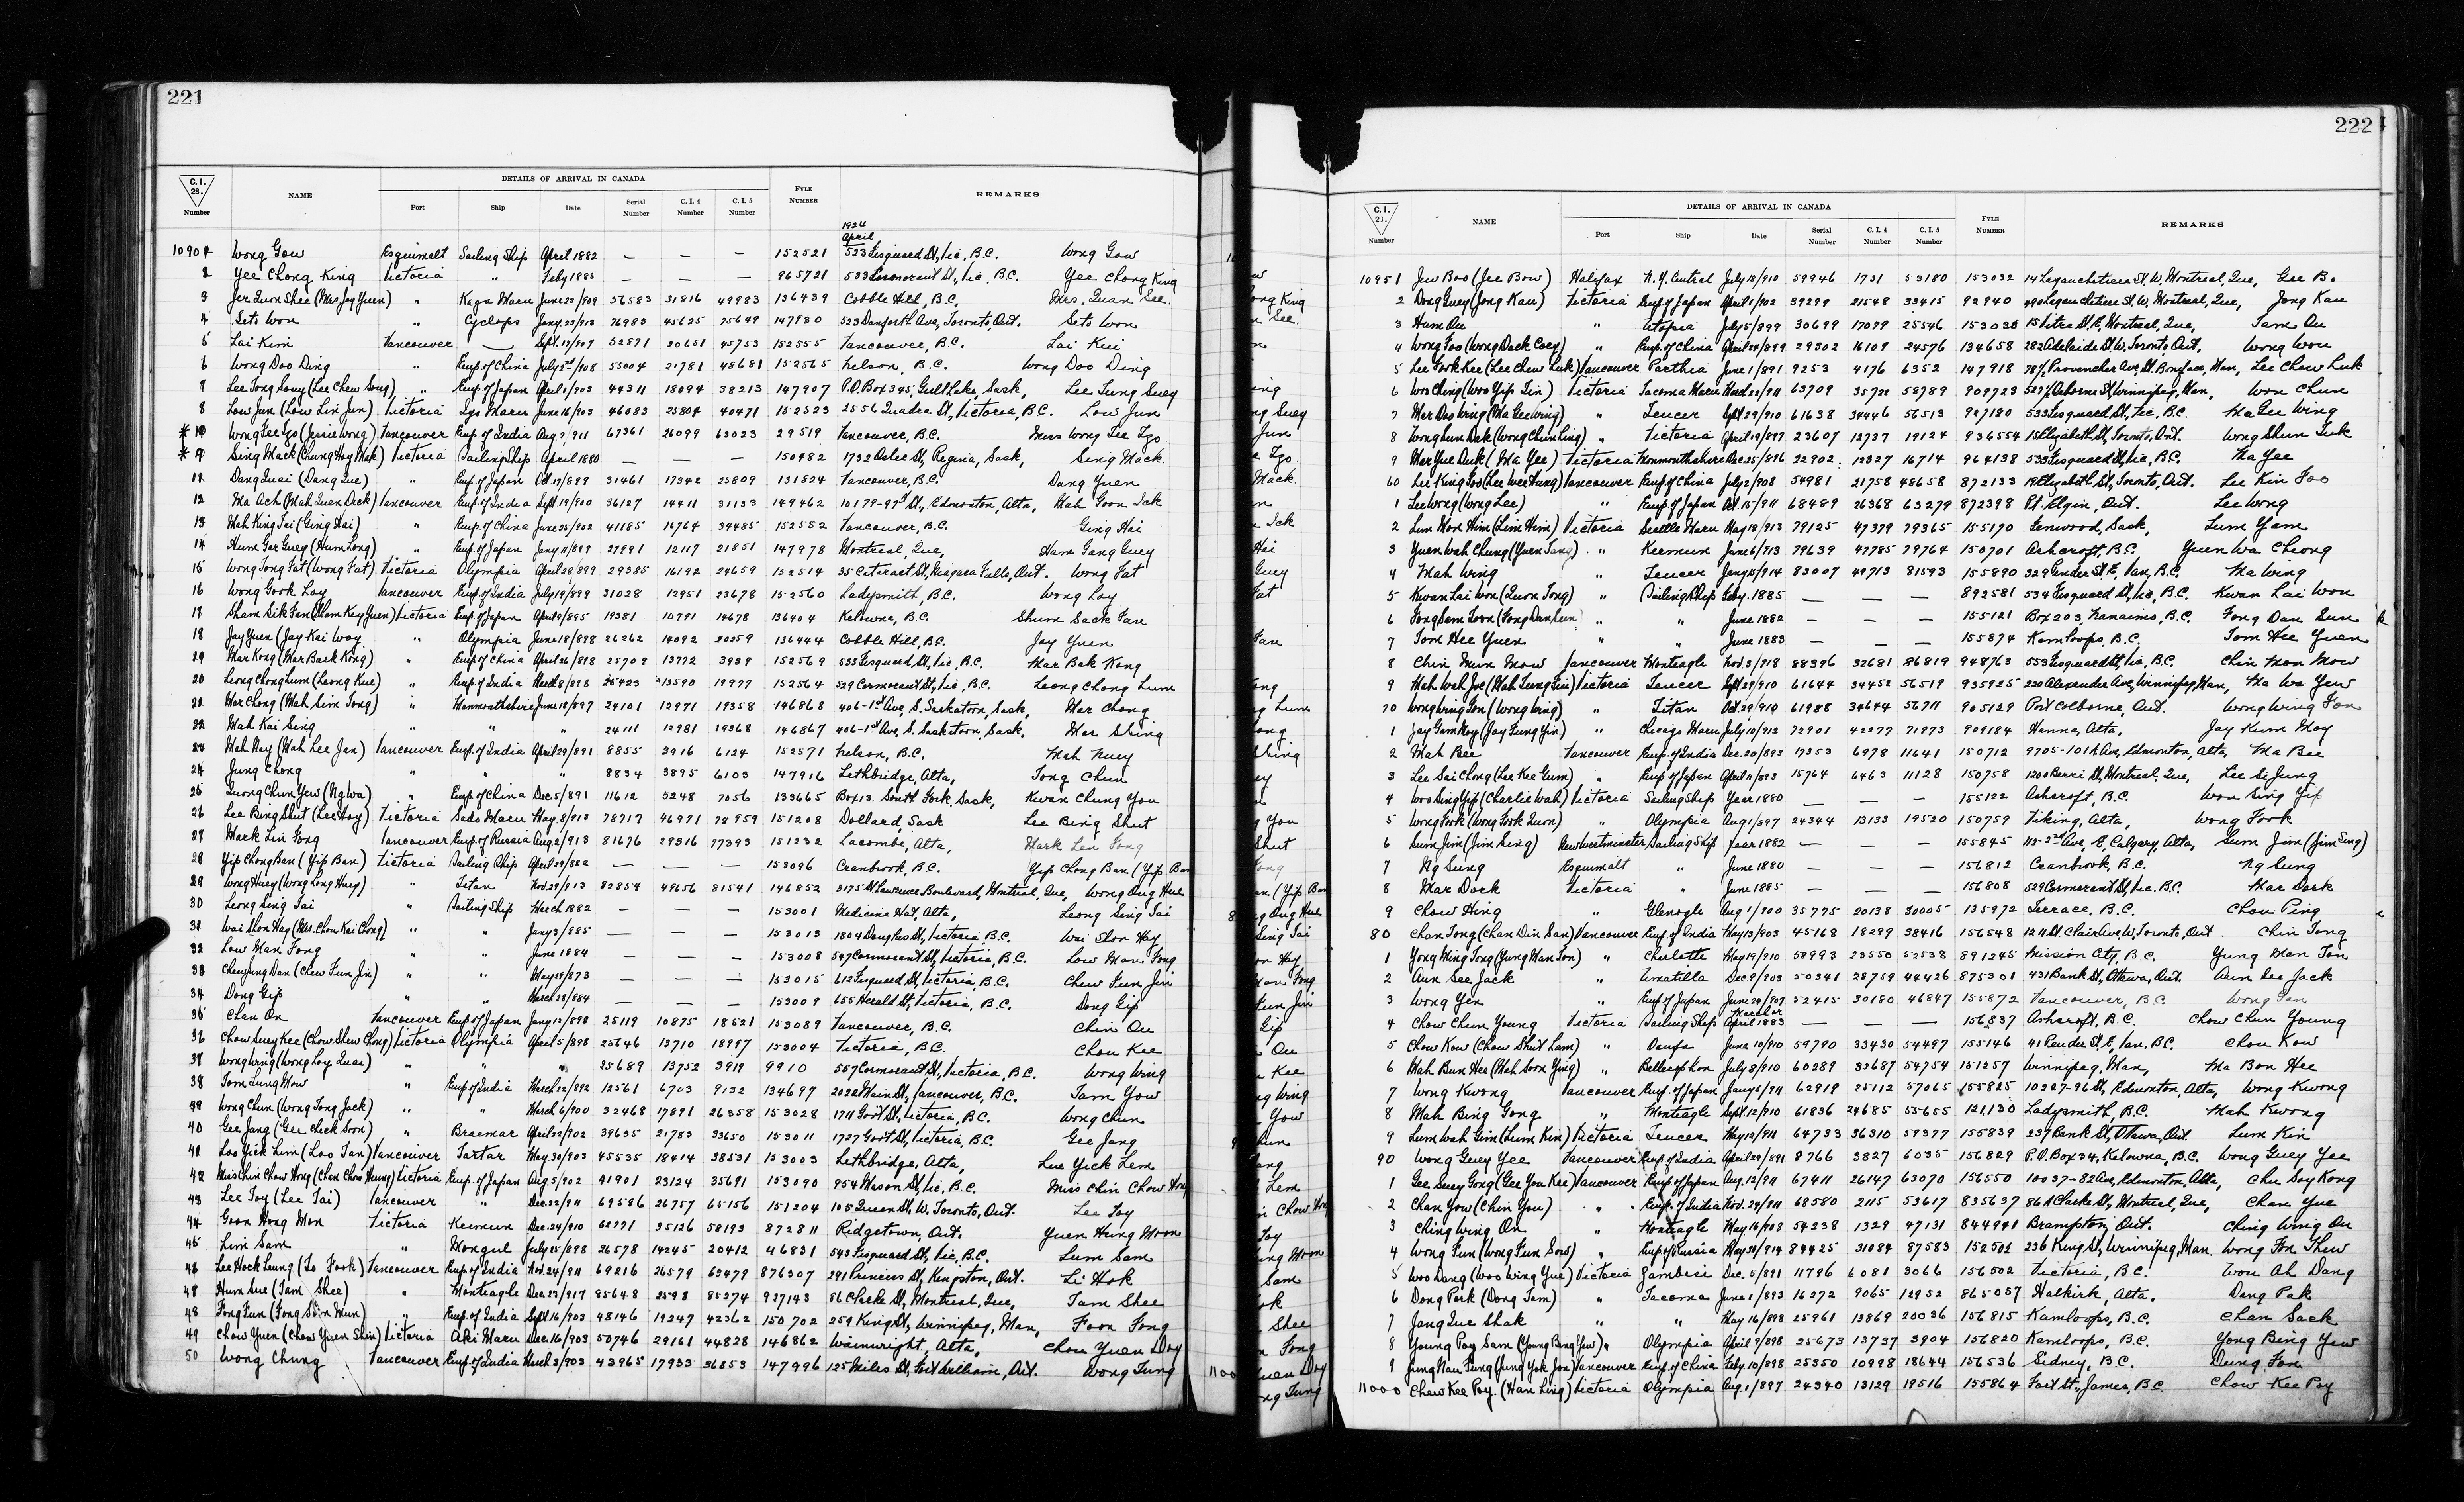 221
C.I. 28. Number NAME DETAILS OF ARRIVAL IN CANADA Port Ship Date Serial Number C.I. 4 Number C.I. 5 Number FYLE NUMBER REMARKS
1924
April
Wong Gow Esquimalt Sailing Ship April 1882 — — — 152521 523 Fisguard St, Vic, B.C. Wong Gow
2 Yee Chong King Victoria " Feby 1885 — — — 965721 533 Cormorant St, Vic, B.C. Yee Chong King
3 Jer Quon Shee (Mrs Jay Yuen) " Kaga Maru June 23/909 56583 31816 49983 136439 Cobble Hill, B.C. Mrs. Quan See
4 Seto Won " Cyclops Jany 23/913 76983 45625 75649 147930 523 Danforth Ave, Toronto, Ont. Seto Won
5 Lai Kim Vancouver — Sept. 19/907 52871 20651 45753 152555 Vancouver, B.C. Lai Kui
6 Wong Doo Ding " Emp. of China July 2nd/908 55004 21781 48681 152565 Nelson, B.C. Wong Doo Ding
7 Lee Tong Louy (Lee Chew Song) " Emp. of Japan April 1/903 44311 18094 38213 147907 P.O. Box 345, Gull Lake, Sask, Lee Tung Suey
8 Low Jun (Low Lin Jun) Victoria Iyo Maru June 16/903 46083 25804 40471 152523 2556 Quadra St, Victoria, B.C. Low Jun
* 10 Wong Fee Igo (Jessie Wong) Vancouver Emp. of India Aug. 7/911 67361 26099 63023 29519 Vancouver, B.C. Miss Wong Fee Igo
* 9 Sing Mack (Chung Hoy Mak) Victoria Sailing Ship April 1880 — — — 150482 1732 Osler St, Regina, Sask, Sing Mack
11 Dang Quai (Dang Que) " Emp. of Japan Oct 17/899 31461 17342 25809 131824 Vancouver, B.C. Dang Yuen
12 Ma Ach (Mah Quen Dick) Vancouver Emp. of India Sept 19/900 36127 14411 31133 149462 10179-97th St, Edmonton, Alta, Mah Goon Ick
13 Mah King Tai (Ging Hai) " Emp. of China June 25/902 41185 16764 34485 152552 Vancouver, B.C. Ging Hai
14 Hum Gar Guey (Hum Long) " Emp. of Japan Jany 11/899 27991 12117 21851 147978 Montreal, Que, Ham Gang Guey
15 Wong Tong Fat (Wong Fat) Victoria Olympia April 28/899 29385 16192 24659 152514 35 Cataract St, Niagara Falls, Ont. Wong Fat
16 Wong Gook Loy Vancouver Emp. of India July 19/899 31028 12951 23678 152560 Ladysmith, B.C. Wong Loy
17 Sham Sik Fan (Sham Key Yuen) Victoria Emp. of Japan April 9/895 19381 10791 14678 136404 Kelowna, B.C. Shum Sack Fan
18 Jay Yuen (Jay Kai Woy " Olympia June 18/898 26262 14092 20259 136444 Cobble Hill, B.C. Jay Yuen
19 Mar Kong (Mar Back Kong) " Emp. of China April 26/898 25709 13772 3939 152569 533 Fisguard St, Vic, B.C. Mar Bak Kong
20 Leong Chong Lum (Leong Kue) " Emp. of India March 8/898 25423 13590 19977 152564 529 Cormorant St, Vic, B.C. Leong Chong Lum
21 Mar Chong (Mah Sim Tong) " Monmouthshire June 18/897 24101 12971 19358 146868 406-1st Ave, S. Saskatoon, Sask, Mar Chong
22 Mah Kai Sing " " " 24111 12981 19368 146867 406-1st Ave, S. Saskatoon, Sask. Mar Shing
23 Mah Nay (Mah Lee Jan) Vancouver Emp. of India April 29/891 8855 3916 6124 152571 Nelson, B.C. Mah Nuey
24 Jung Chong " " " 8834 3895 6103 147916 Lethbridge, Alta, Tong Chun
25 Quong Chun Yew (Ng Wa) " Emp. of China Dec. 5/891 11612 5248 7056 133665 Box 13. South Fork, Sask, Kwan Chung You
26 Lee Bing Shut (Lee Hoy) Victoria Sado Maru May. 8/913 78717 46971 78959 151208 Dollard, Sask Lee Bing Shut
27 Mark Lin Fong Vancouver Emp. of Russia Aug. 2/913 81676 29316 77393 151232 Lacombe, Alta, Mark Len Fong
28 Yip Chong Ban (Yip Ban) Victoria Sailing Ship April 29/882 — — — 153096 Cranbrook, B.C. Yip Chong Ban (Yip Ban
29 Wong Huey (Wong Long Huey) " Titan Nov. 29/913 82854 49656 81541 146852 3175 St Lawrence Boulevard, Montreal, Que, Wong Ong Hue
30 Leong Sing Tai " Sailing Ship March 1882 — — — 153001 Medicine Hat, Alta, Leong Sing Tai
31 Wai Slon Hay (Mrs. Chow Kai Chong) " " Jany 3/885 — — — 153013 1804 Douglas St, Victoria B.C. Wai Slon Hay
32 Low Man Fong " " June 1884 — — — 153008 547 Cormorant St, Victoria, B.C. Low Man Fong
33 Chew Jung Dan (Chew Fun Jin) " " May 29/873 — — — 153015 612 Fisguard St, Victoria, B.C. Chew Fun Jin
34 Dong Gip " " March 28/884 — — — 153009 655 Herald St, Victoria, B.C. Dong Gip
35 Chan On Vancouver Emp. of Japan Jany 12/898 25119 10875 18521 153089 Vancouver, B.C. Chin Ou
36 Chow Suey Kee (Chow Shew Chong) Victoria Olympia April 5/898 25646 13710 18997 153004 Victoria, B.C. Chou Kee
37 Wong Wing (Wong Loy Quai) " " " 25689 13752 3919 9910 557 Cormorant St, Victoria, B.C. Wong Wing
38 Tom Lung Mow " Emp. of India March 22/892 12561 6703 9132 134697 2032 Main St, Vancouver, B.C. Tam Yow
39 Wong Chun (Wong Tong Jack) " " March 6/900 32468 17891 26358 153028 1711 Govt St, Victoria, B.C. Wong Chun
40 Gee Jang (Gee Cheek Soon) " Braemar April 22/902 39635 21783 33650 153011 1727 Govt St, Victoria, B.C. Gee Jang
41 Loo Yick Lim (Loo Tan) Vancouver Tartar May. 30/903 45535 18414 38531 153003 Lethbridge, Alta, Lue Yick Lem
42 Miss Chin Chow Hong (Chan Chow Heung) Victoria Emp. of Japan Aug. 5/902 41901 23124 35691 153090 954 Mason St, Vic, B.C. Miss Chin Chow Hong
43 Lee Toy (Lee Tai) Vancouver " Dec. 22/911 69586 26757 65156 151204 105 Queen St, W. Toronto, Ont. Lee Toy
44 Goon Hong Mon Victoria Keemun Dec. 24/910 62771 35126 58193 872811 Ridgetown, Ont. Yuen Hung Moon
45 Lim Sam " Mongul July 25/898 26578 14245 20412 46831 543 Fisguard St, Vic, B.C. Lum Sam
46 Lee Hock Leung (Lo Fook) Vancouver Emp. of India Nov. 24/911 69216 26579 63479 876307 291 Princess St, Kingston, Ont. Li Hok
47 Hum Sue (Tam Shee) " Monteagle Dec. 23/917 85648 2598 85274 927143 86 Clarke St, Montreal, Que, Tam Shee
48 Fong Fun (Fong Soon Mun) " Emp. of India Sept. 16/903 48146 19247 42362 150702 259 King St, Winnipeg, Man, Foon Fong
49 Chow Yuen (Chow Yuen Shin) Victoria Aki Maru Dec. 16/903 50746 29161 44828 146862 Wainwright, Alta, Chou Yuen Doy
50 Wong Chung Vancouver Emp. of India March 3/903 43965 17933 36853 147996 125 Miles St, Fort William, Ont. Wong Tung
222
C.I. 28. Number NAME DETAILS OF ARRIVAL IN CANADA Port Ship Date Serial Number C.I. 4 Number C.I. 5 Number FYLE NUMBER REMARKS
10951 Jew Boo (Jee Bow) Halifax N.Y. Central July 18/910 59946 1731 53180 153032 14 Lagauchetiere St, W. Montreal, Que, Gee Bo
2 Dong Guey (Jong Kau) Victoria Emp. of Japan April 1/902 39299 21548 33415 92940 490 Lagauchetiere St, W, Montreal, Que, Jong Kau
3 Hum Ou " Utopia July 5/899 30699 17079 25546 153038 15 Vitre St, E, Montreal, Que, Tam Ou
4 Wong Foo (Wong Dack Coey) " Emp. of China April 24/899 29302 16109 24576 134658 282 Adelaide St. W. Toronto, Ont. Wong Won
5 Lee Fook Kee (Lee Chew Luk) Vancouver Parthia June 1/891 9253 4176 6352 147918 Provencher Ave, St. Boniface, Man, Lee Chew Luk
6 Woo Ching (Woo Yip Tin) Victoria Tacoma Maru March 22/911 63709 35720 58789 909723 Osborne St, Winnipeg, Man, Won Chun
7 Mar Das Wing (Ma Gee Wing) " Teucer Sept. 29/910 61638 34446 56513 927180 533 Fisguard St, Vic, B.C. Ma Gee Wing
8 Wong Sun Dak (Wong Chun Ling) " Victoria April 19/897 23607 12737 19124 936554 15 Elizabeth St, Toronto, Ont. Wong Shun Tuk
9 Mar Yue Duck (Ma Yee) Victoria Monmouthshire Dec. 25/896 22902 12327 16714 964138 533 Fisguard St, Vic, B.C. Ma Yee
60 Lee King Foo (Lee Wee Hung) Vancouver Emp. of China July 2/908 54981 21758 48658 872133 19 Elizabeth St, Toronto, Ont. Lee Kin Foo
1 Lee Wong (Wong Lee) " Emp. of Japan Oct. 15/911 68489 26368 63279 872398 Pt. Elgin, Ont. Lee Wong
2 Lim Mon Him (Lim Him) Victoria Seattle Maru May 18/913 79125 47379 79365 155170 Lenwood, Sask, Lum Yam
3 Yuen Wah Chung (Yuen Sang) " Keemun June 6/913 79639 47785 79764 150701 Ashcroft, B.C. Yuen Wa Cheong
4 Mah Wing " Teucer Jany 15/914 83007 49713 81593 155890 329 Pender St E, Van, B.C. Ma Wing
5 Kwan Lai Won (Quon Tong) " Sailing Ship Feby. 1885 — — — 892581 534 Fisguard St, Vic, B.C. Kwan Lai Won
6 Fong Dem Toon (Fong Dan Sun) " " June 1882 — — — 155121 Box 203, Nanaimo, B.C. Fong Dan Sun
7 Tom Hee Yuen " " June 1883 — — — 155874 Kamloops, B.C. Tom Hee Yuen
8 Chin Mun Mow Vancouver Monteagle Nov. 3/918 88396 32681 86819 948763 553 Fisguard St, Vic, B.C. Chin Mon Mow
9 Mah Wah Joe (Mah Tung Tin) Victoria Teucer Sept 29/910 61644 34452 56519 935925 220 Alexander Ave, Winnipeg, Man, Ma Wa Yew
70 Wong Wing Fon (Wong Wing) " Titan Oct. 29/910 61988 34644 56711 905129 Port Colborne, Ont. Wong Wing Fon
1 Jay Gam Moy (Jay Fung Yin) " Chicago Maru July 10/912 72901 42277 71973 909184 Hanna, Alta, Jay Kum Moy
2 Mah Bee Vancouver Emp. of India Dec. 20/893 17353 6978 11641 150712 9705-101st Ave, Edmonton, Alta, Ma Bee
3 Lee Sai Chong (Lee Kee Gum) " Emp. of Japan April 11/893 15764 6463 11128 150758 1200 Berri St, Montreal, Que, Lee Si Jung
4 Woo Sing Yip (Charlie Wah) Victoria Sailing Ship Year 1880 — — — 155122 Ashcroft, B.C. Won Sing Yip
5 Wong Fook (Wong Fook Quon) " Olympia Aug 1/897 24344 13133 19520 150759 Viking, Alta, Wong Fook
6 Sum Jim (Jim Sing) New Westminster Sailing Ship Year 1882 — — — 155845 115-2nd Ave, E, Calgary, Alta, Sum Jim (Jim Sing)
7 Ng Sung Esquimalt " June 1880 — — — 156812 Cranbrook, B.C. Ng Sung
8 Mar Dock Victoria " June 1885 — — — 156808 529 Cormorant St, Vic. B.C. Mar Dock
9 Chow Hing " Glenogle Aug 1/900 35775 20138 30005 135972 Terrace, B.C. Chou Ping
80 Chan Tong (Chan Din San) Vancouver Emp. of India May 13/903 45168 18299 38416 156548 1211 St. Clair Ave W, Toronto, Ont. Chin Tong
1 Yong Ming Tong (Yung Man Ton) " Charlotte May 19/910 58993 23550 52538 891245 Mission City, B.C. Yung Man Ton
2 Aun See Jack " Umatilla Dec. 9/903 50341 28759 44426 875301 431 Bank St, Ottawa, Ont. Aun See Jack
3 Wong Yen " Emp. of Japan June 24/907 52415 30180 46847 155872 Vancouver, B.C. Wong Yan
4 Chow Chun Young Victoria Sailing Ship March or April 1883 — — — 156837 Ashcroft, B.C. Chow Chun Young
5 Chow Kow (Chow Shut Lam) " Oanfa June 10/910 59790 33430 54497 155146 41 Pender St, E, Van, B.C. Chou Kow
6 Mah Bun Hee (Mah Soon Ying) " Bellerophon July 8/910 60289 33687 54754 151257 Winnipeg, Man, Ma Bon Hee
7 Wong Kwong Vancouver Emp. of Japan Jany 6/911 62919 25112 57065 155825 10227-96 St, Edmonton, Alta, Wong Kwong
8 Mah Bing Gong " Monteagle Sept. 12/910 61836 24685 55655 121130 Ladysmith, B.C. Mah Kwong
9 Lum Wah Gim (Lum Kin) Victoria Teucer May 12/911 64733 36310 59377 155839 237 Bank St, Ottawa, Ont. Lum Kin
90 Wong Guey Yee Vancouver Emp. of India April 29/891 8766 3827 6035 156829 P.O. Box 34, Kelowna, B.C. Wong Guey Yee
1 Gee Suey Gong (Gee You Kee) Vancouver Emp. of Japan Aug. 12/911 67411 26147 63070 156550 10037-82 Ave, Edmonton, Alta, Chu Soy Kong
2 Chan Yow (Chin You) " Emp. of India Nov. 24/911 68580 2115 53617 835637 86A Clarke St, Montreal, Que, Chan Yue
3 Ching Wing On " Monteagle May. 16/908 54238 1329 47131 844941 Brampton, Ont. Ching Wing On
4 Wong Fun (Wong Fun Sow) " Emp. of Russia May 30/914 84425 31084 87583 152501 236 King St, Winnipeg, Man. Wong Fon Thew
5 Woo Dang (Woo Wing Yue) Victoria Zambesi Dec. 5/891 11796 6081 3066 156502 Victoria, B.C. Wou Ah Dang
6 Dong Park (Dong Tam) " Tacoma June 1/893 16272 9065 12952 865057 Halkirk, Alta. Dang Pak
7 Jang Sue Shak " " May 16/898 25961 13869 20036 156815 Kamloops, B.C. Chan Sack
8 Young Poy Sam (Young Bing Yew) " Olympia April 9/898 25673 13737 3904 156820 Kamloops, B.C. Yong Bing Yew
9 Jung Nau Fung (Jung Yok Jon) Vancouver Emp. of China Feby. 10/898 25350 10998 18644 156536 Sidney, B.C. Dung Fon
11000 Chew Kee Poy. (Han Ling) Victoria Olympia Aug. 1/897 24340 13129 19516 155864 Fort St, James, B.C. Chow Kee Poy